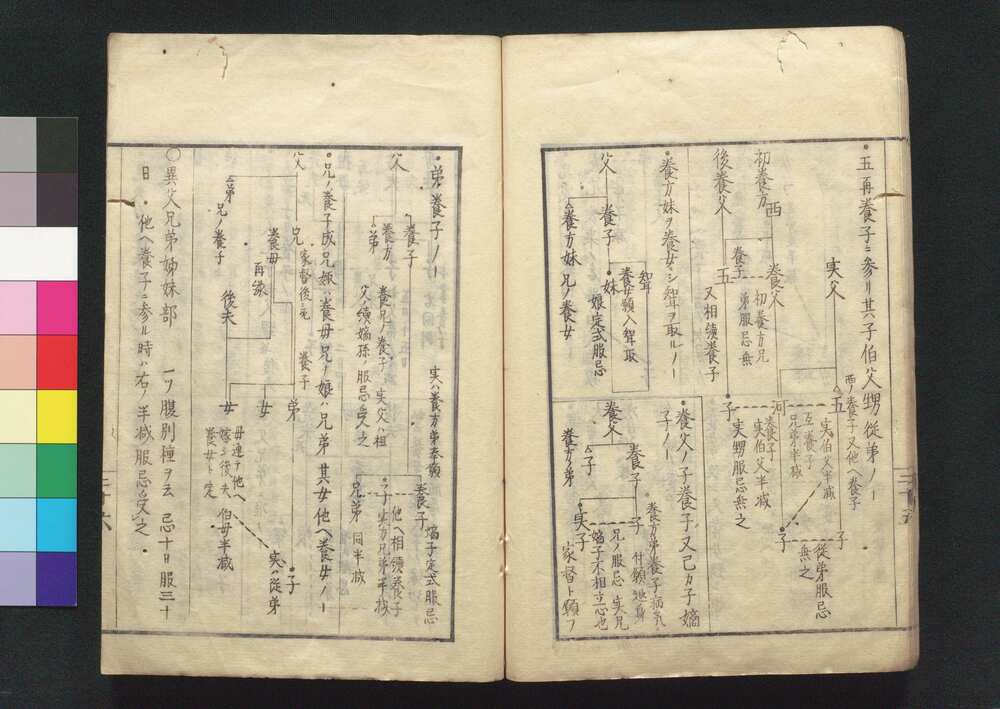 ・五再養子ニ参リ其子伯父甥従弟ノー
実父
五
西ノ養子又他ヘ養子
実伯父半減
互養子
兄弟半減
子
子
従弟服忌
無之
初養方
西
後養父
養子
五
養父
初養方兄
弟服忌無
又相続養子
河
養子
実伯父半減
子
実甥服忌無之
・養方妹ヲ養女ニシ聟ヲ取ルノー
父
養子
養方妹
兄ノ養女
聟
養女願入聟取
妹
娘定式服忌
・養父ノ子養子又己カ子嫡
子ノー
養父
養子
子
養方ノ弟
子
実子
養方弟養子病気
兄ノ服忌
実兄
嫡子不相立也
家督ト願フ
二十五
・弟養子ノー
実ハ養方弟奉願
父
養子
養方
弟
養兄ノ養子
実父ハ祖
父続嫡孫ノ服忌受之
養子
嫡子定式服忌
子
他ヘ相続養子
実方兄弟半減
兄弟
同半減
・兄ノ養子成兄娵ハ養母兄ノ娘ハ兄弟其女他ヘ養女ノー
父
兄
家督後死
養子
弟
弟
兄ノ養子
養母
再縁
後夫
女
女
母連テ他ヘ
嫁シ後夫
養女ト定
伯母半減
子
実ハ従弟
〇異父兄弟姉妹部
一ツ腹別種ヲ云
忌十日服三十
日・他ヘ養子ニ参ル時ハ右ノ半減服忌受之・
二十六